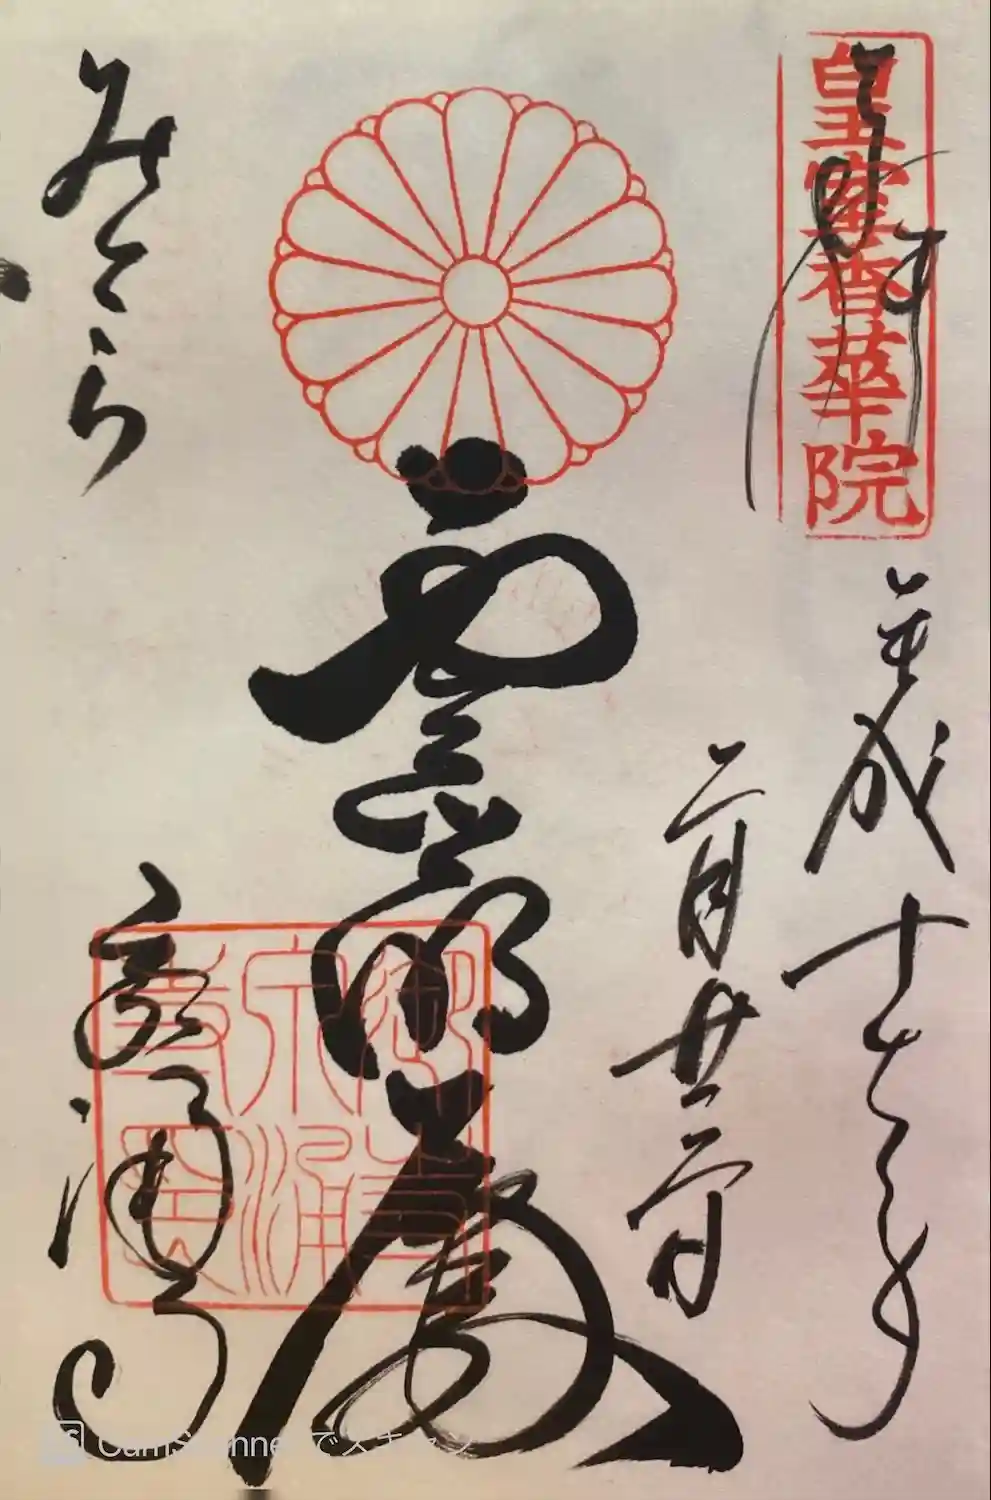 皇室香華院
奉拝
平成十七年
二月廿二日
霊明殿
みてら
泉涌寺
CamScannerでスキャン